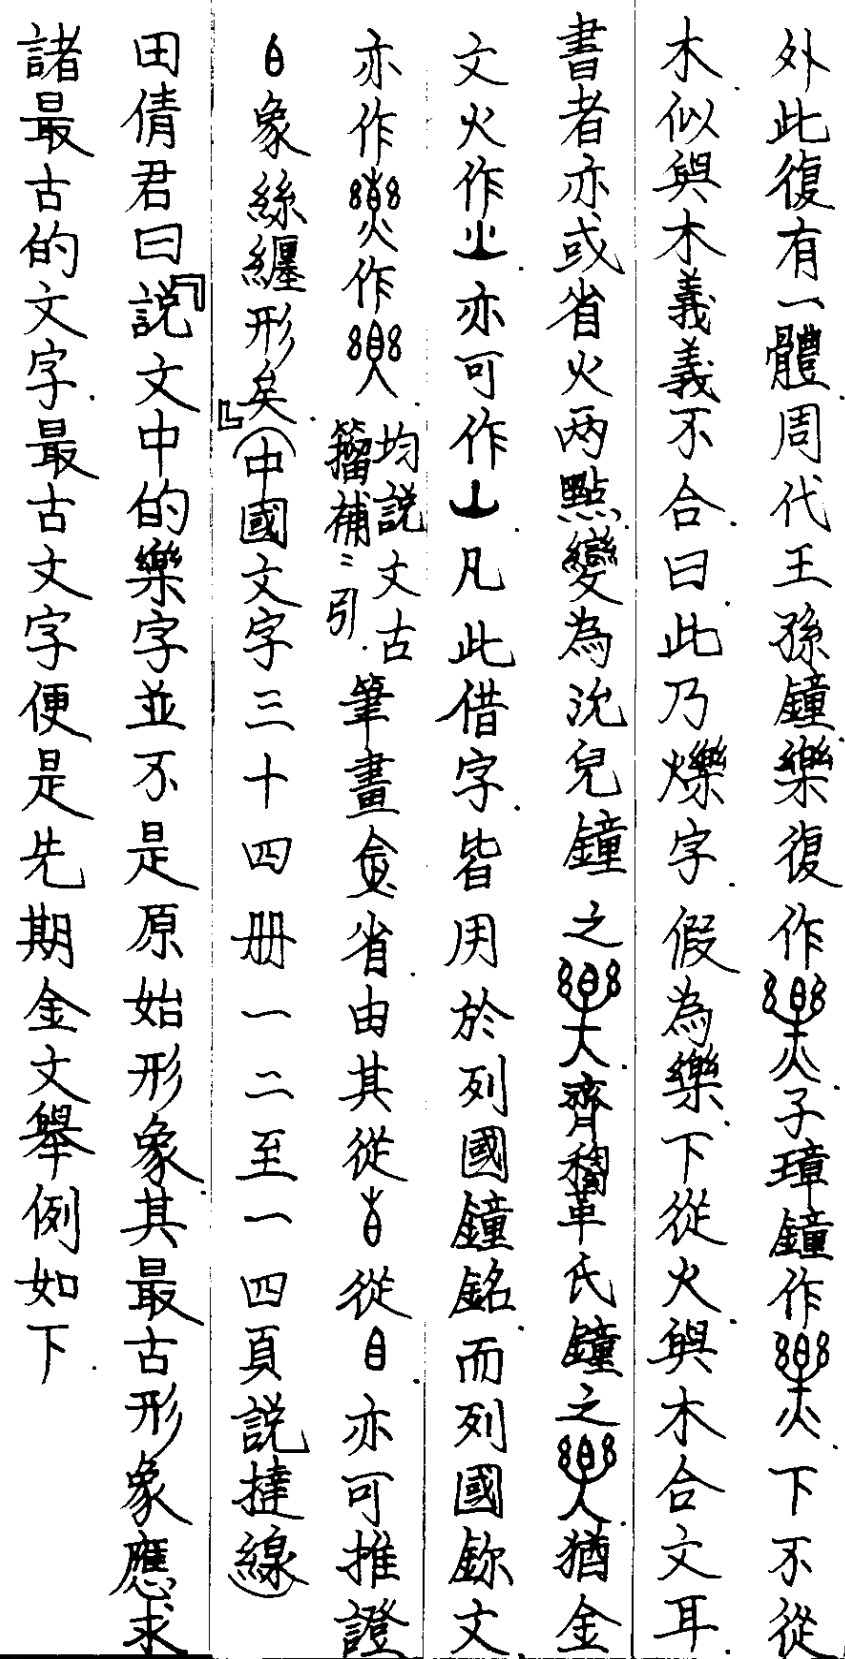 外此復有一體周代王孫鐘樂復作子璋鐘作下不從
木似與木義義不合.曰.此乃爍字.假為樂.下從火.與木合文耳.
書者亦或省火两點.變為沇兒鐘之大.齊𥠖革氏鐘之.猶金
文火作.亦可作.凡此借字.皆用於列國鐘銘.而列國鉨文
亦作火作均說文古籀補ミ引.筆畫僉省.由其從從.亦可推證
象絲纏形矣.』(中國文字三十四册一二至一四頁説撻線)
田倩君曰『説文中的樂字並不是原始形象.其最古形象應求
諸最古的文字.最古文字便是先期金文舉例如下.